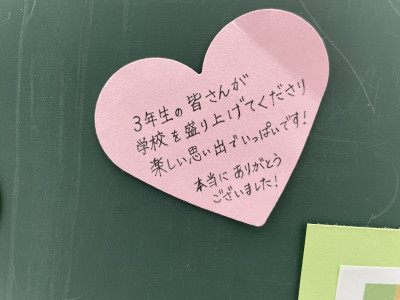 3年生の皆さんが
学校を盛り上げてくださり
楽しい思い出でいっぱいです!
本当にありがとう
ございました!